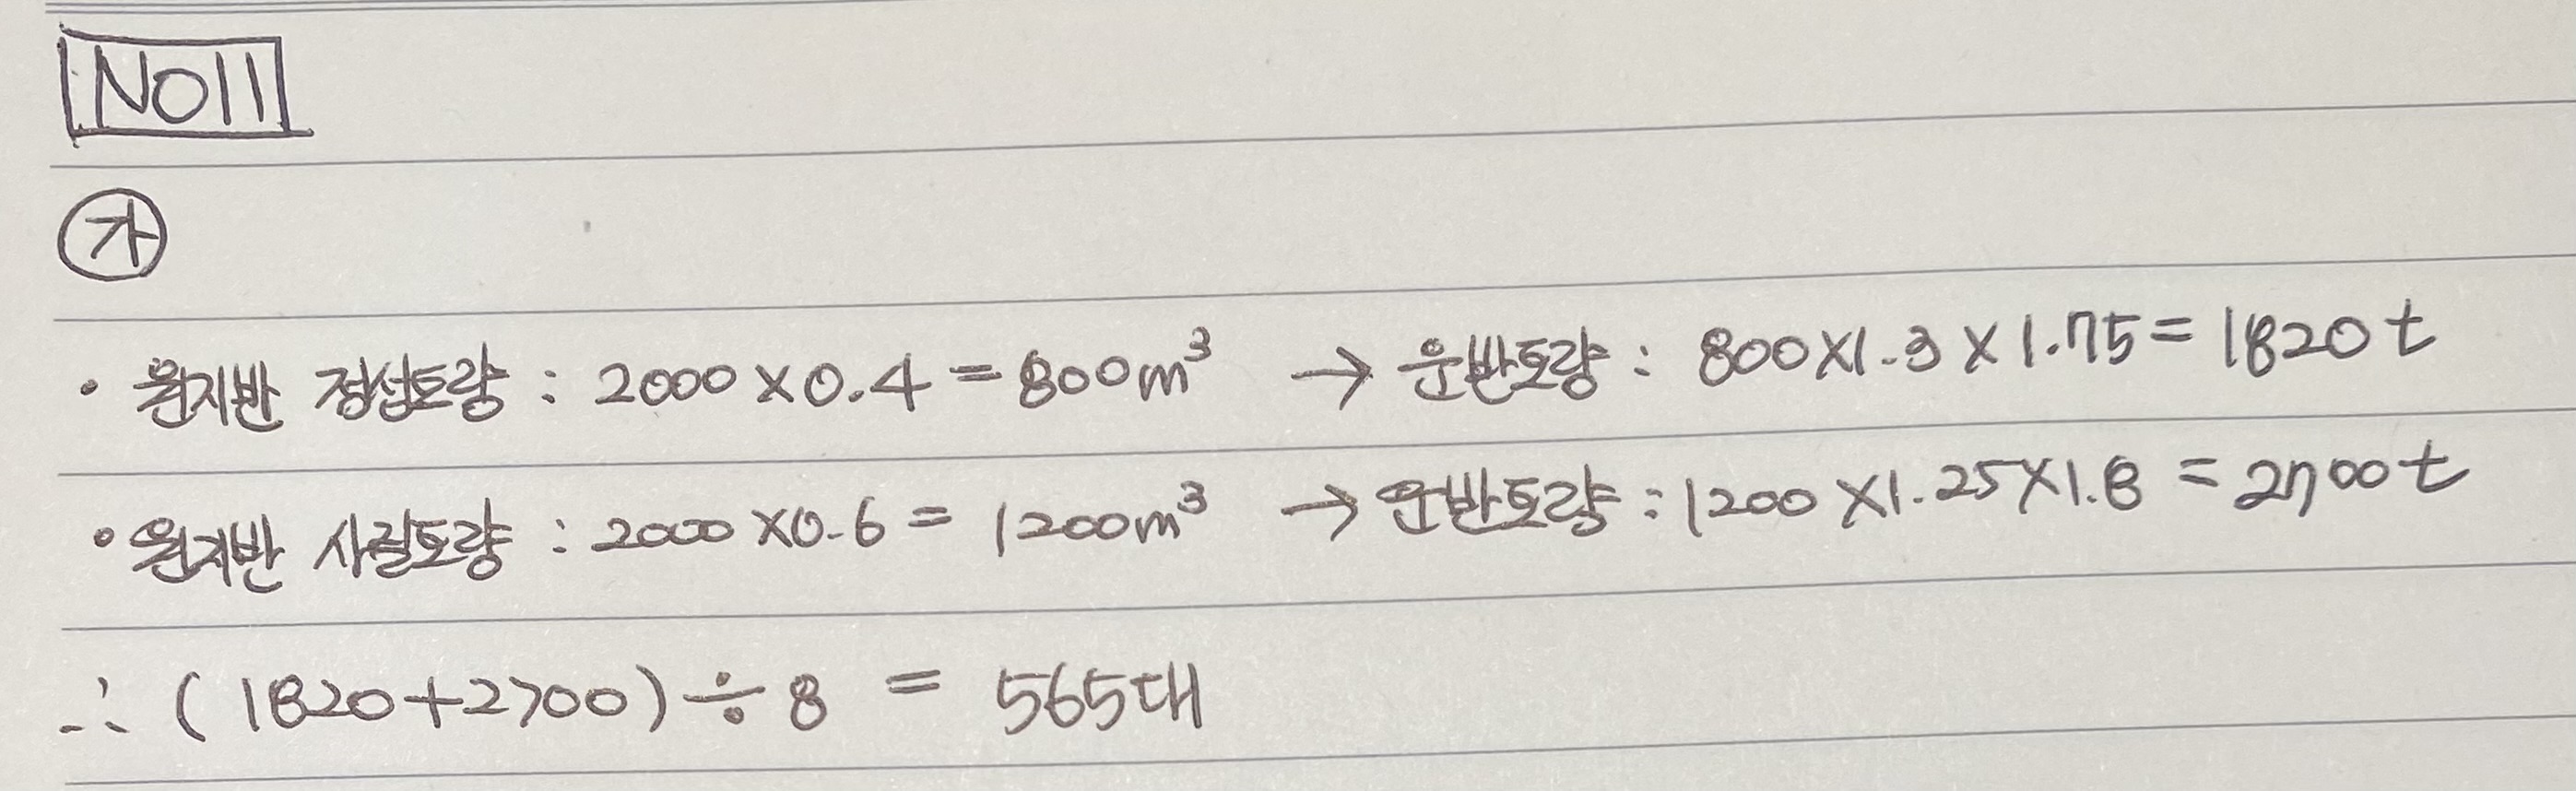 NO11
㉮
• 원지반 점성토량 : 2000 × 0.4 = 800m³ → 운반토량 : 800×1.3×1.75 = 1820t
• 원지반 사질토량 : 2000 ×0.6 = 1200m³ → 운반토량 : 1200 ×1.25×1.8 = 2700t
∴ (1820+2700) ÷ 8 = 565대